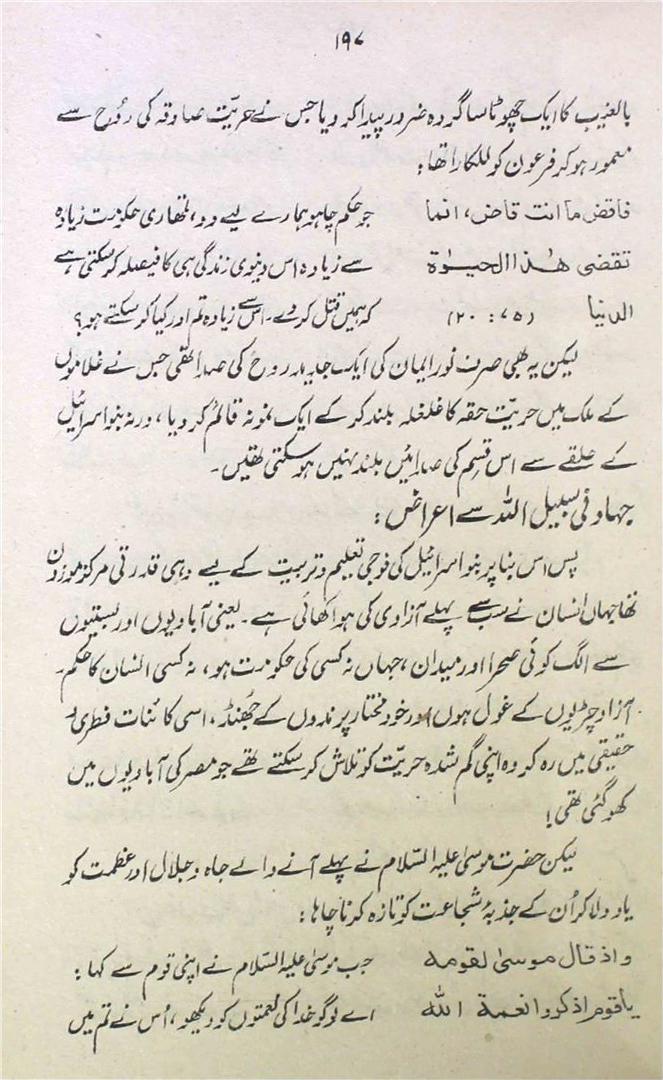 ۱۹۷
بالغیب کا ایک چھوٹا سا گروہ ضرور پیدا کر دیا جس نے حریّت صادقہ کی رُوح سے
معمور ہو کر فرعون کو للکارا تھا :
فاقض ما انت قاض، انما جو حکم چاہو ہمارے لیے دو، تمھاری حکومت زیادہ
تقضی ھٰذا الحیٰوۃ سے زیادہ اس دنیوی زندگی ہی کا فیصلہ کر سکتی ہے
الدنیا (۷۵ : ۲۰) کہ ہمیں قتل کر دے۔ اس سے زیادہ تم اور کیا کر سکتے ہو؟
لیکن یہ بھی صرف نور ایمان کی ایک جدید روح کی صدا تھی جس نے غلاموں
کے ملک میں حریّت حقہ کا غلغلہ بلند کر کے ایک نمونہ قائم کر دیا، ورنہ بنو اسرائیل
کے حلقے سے اس قسم کی صدائیں بلند نہیں ہو سکتی تھیں۔
جہاد فی سبیل اللہ سے اعراض :
پس اس بنا پر بنو اسرائیل کی فوجی تعلیم و تربیت کے لیے وہی قدرتی مرکز موزون
تھا جہاں انسان نے سب سے پہلے آزادی کی ہوا کھائی ہے۔ یعنی آبادیوں اور بستیوں
سے الگ کوئی صحرا اور میدان، جہاں نہ کسی کی حکومت ہو، نہ کسی انسان کا حکم۔
آزاد چڑیوں کے غول ہوں اور خود مختار پرندوں کے جھنڈ، اسی کائنات فطری و
حقیقی میں رہ کر وہ اپنی گم شدہ حریّت کو تلاش کر سکتے تھے جو مصر کی آبادیوں میں
کھو گئی تھی!
لیکن حضرت موسیٰ علیہ السّلام نے پہلے آنے والے جاہ و جلال اور عظمت کو
یاد دلا کر اُن کے جذبۂ شجاعت کو تازہ کرنا چاہا :
واذ قال موسیٰ لقومه جب موسیٰ علیہ السّلام نے اپنی قوم سے کہا :
یٰاقوم اذکروا نعمۃ اللہ اے لوگو خدا کی نعمتوں کو دیکھو، اُس نے تم میں